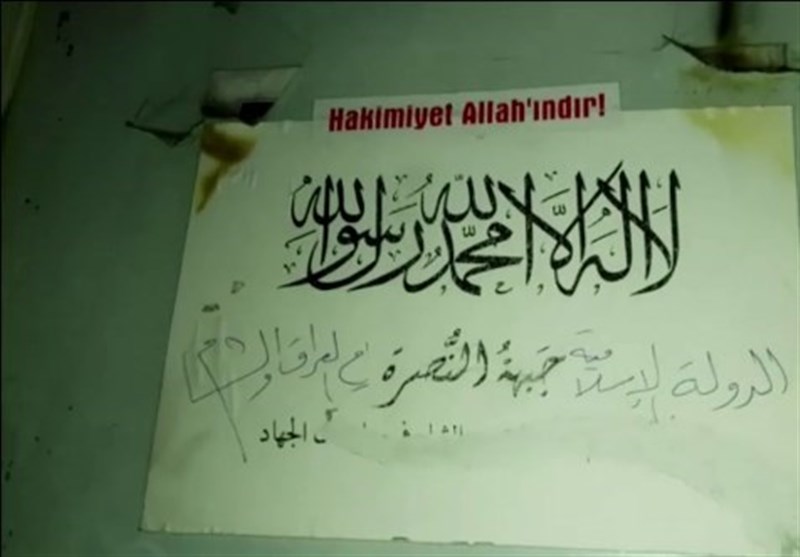 Hakimiyet Allah'ındır!
لا إله إلا الله محمد رسول الله
الدولة الإسلامية جَبهةُ النُّصرة في العراق والشام
الجهاد